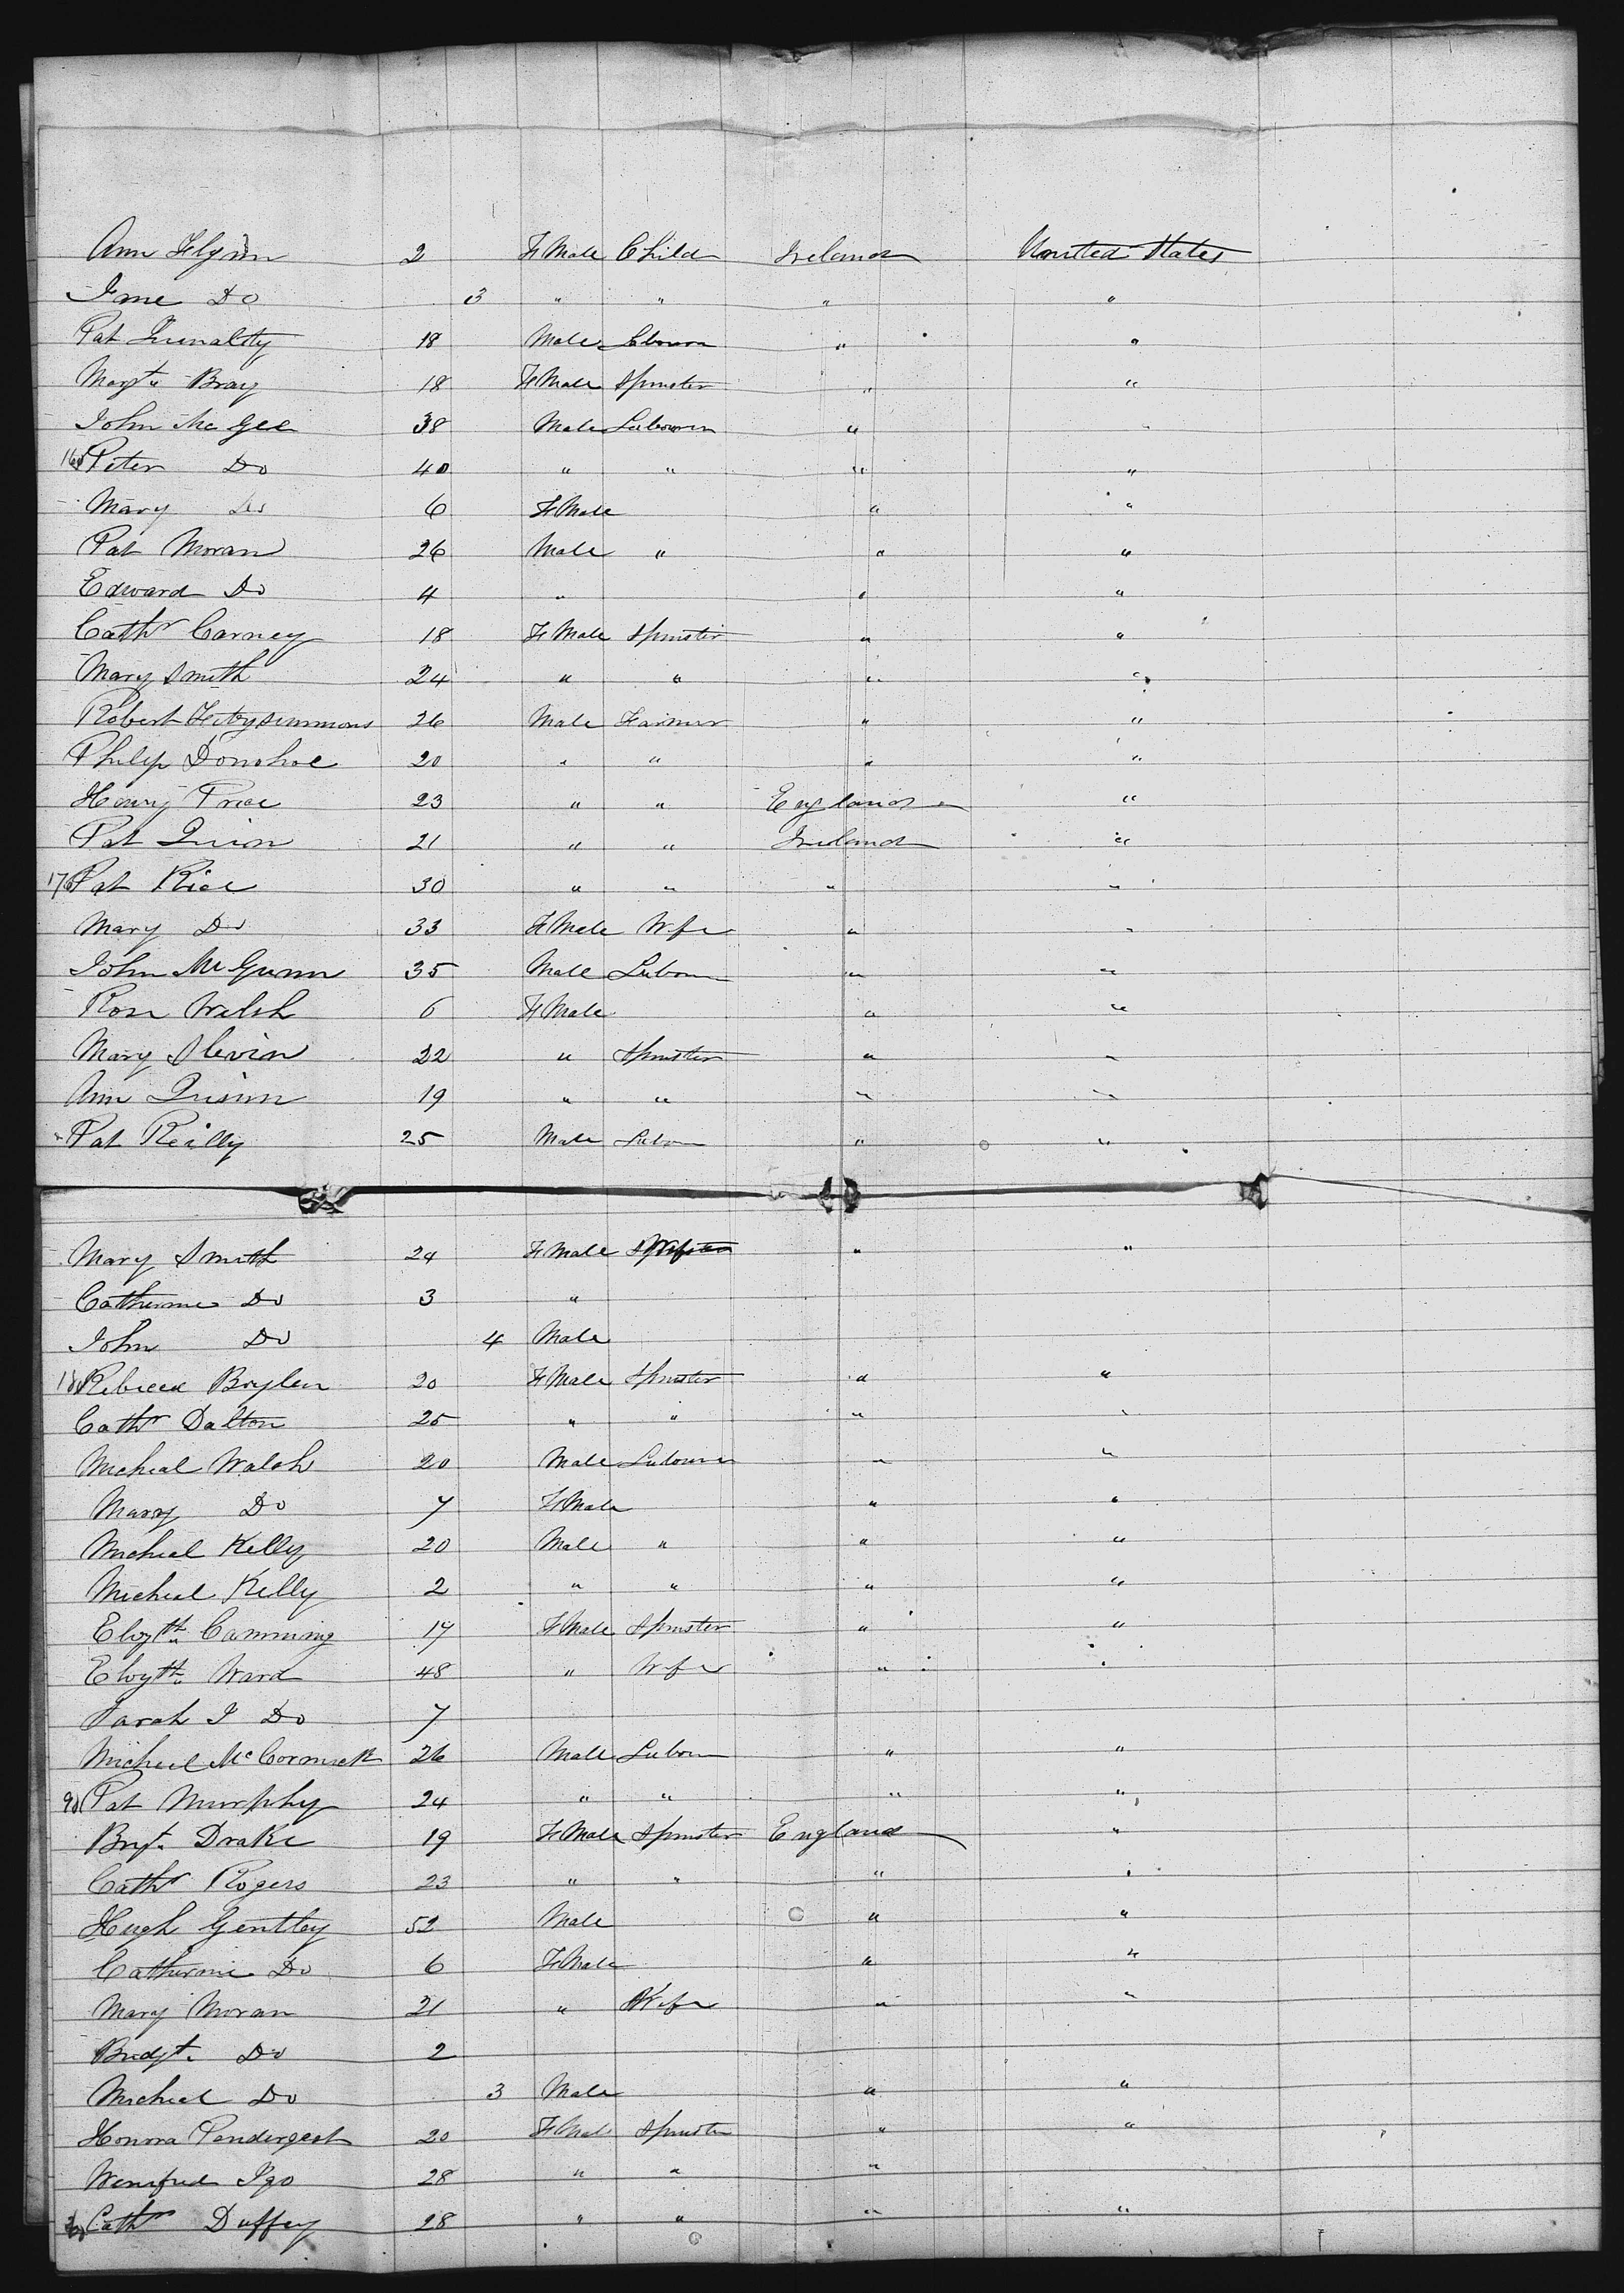 Ann Flynn 2 FMale Child Ireland United States
Jane Do 3 " " " "
Pat Quinality 18 Male Labourer " "
Margt. Bray 18 FMale Spinster " "
John McGee 38 Male Labourer " "
160 Peter Do 40 " " " "
Mary Do 6 FMale " "
Pat Moran 26 Male " " "
Edward Do 4 " " "
Cathr Carney 18 FMale Spinster " "
Mary Smith 24 " " " "
Robert Fitzsimmons 26 Male Farmer " "
Philip Donohoe 20 " " " "
Henry Price 23 " " England "
Pat Quion 21 " " Ireland "
170 Pat Rice 30 " " " "
Mary Do 33 FMale Wife " "
John McGunn 35 Male Labour " "
Rose Welsh 6 FMale " "
Mary Slevin 22 " Spinster " "
Ann Quinn 19 " " " "
Pat Reilly 25 Male Labour " "
Mary Smith 24 FMale Wife " "
Catherine Do 3 "
John Do 4 Male
180 Rebecca Boylen 20 FMale Spinster " "
Cathr Dalton 25 " " " "
Micheal Walsh 20 Male Labourer " "
Mary Do 7 FMale " "
Micheal Kelly 20 Male " " "
Micheal Kelly 2 " " " "
Elizth. Camming 17 FMale Spinster " "
Elizth. Ward 48 " Wife " "
Sarah J Do 7
Micheal McCormick 26 Male Labour " "
90 Pat Murphy 24 " " " "
Brigt. Drake 19 FMale Spinster England "
Cathr Rogers 23 " " " "
Hugh Gentley 52 Male " "
Catherine Do 6 FMale " "
Mary Moran 21 " Wife " "
Bridgt. Do 2
Micheal Do 3 Male " "
Honora Pendergest 20 FMale Spinster " "
Wenifred Igo 28 " " "
Cathr Duffey 28 " " " "